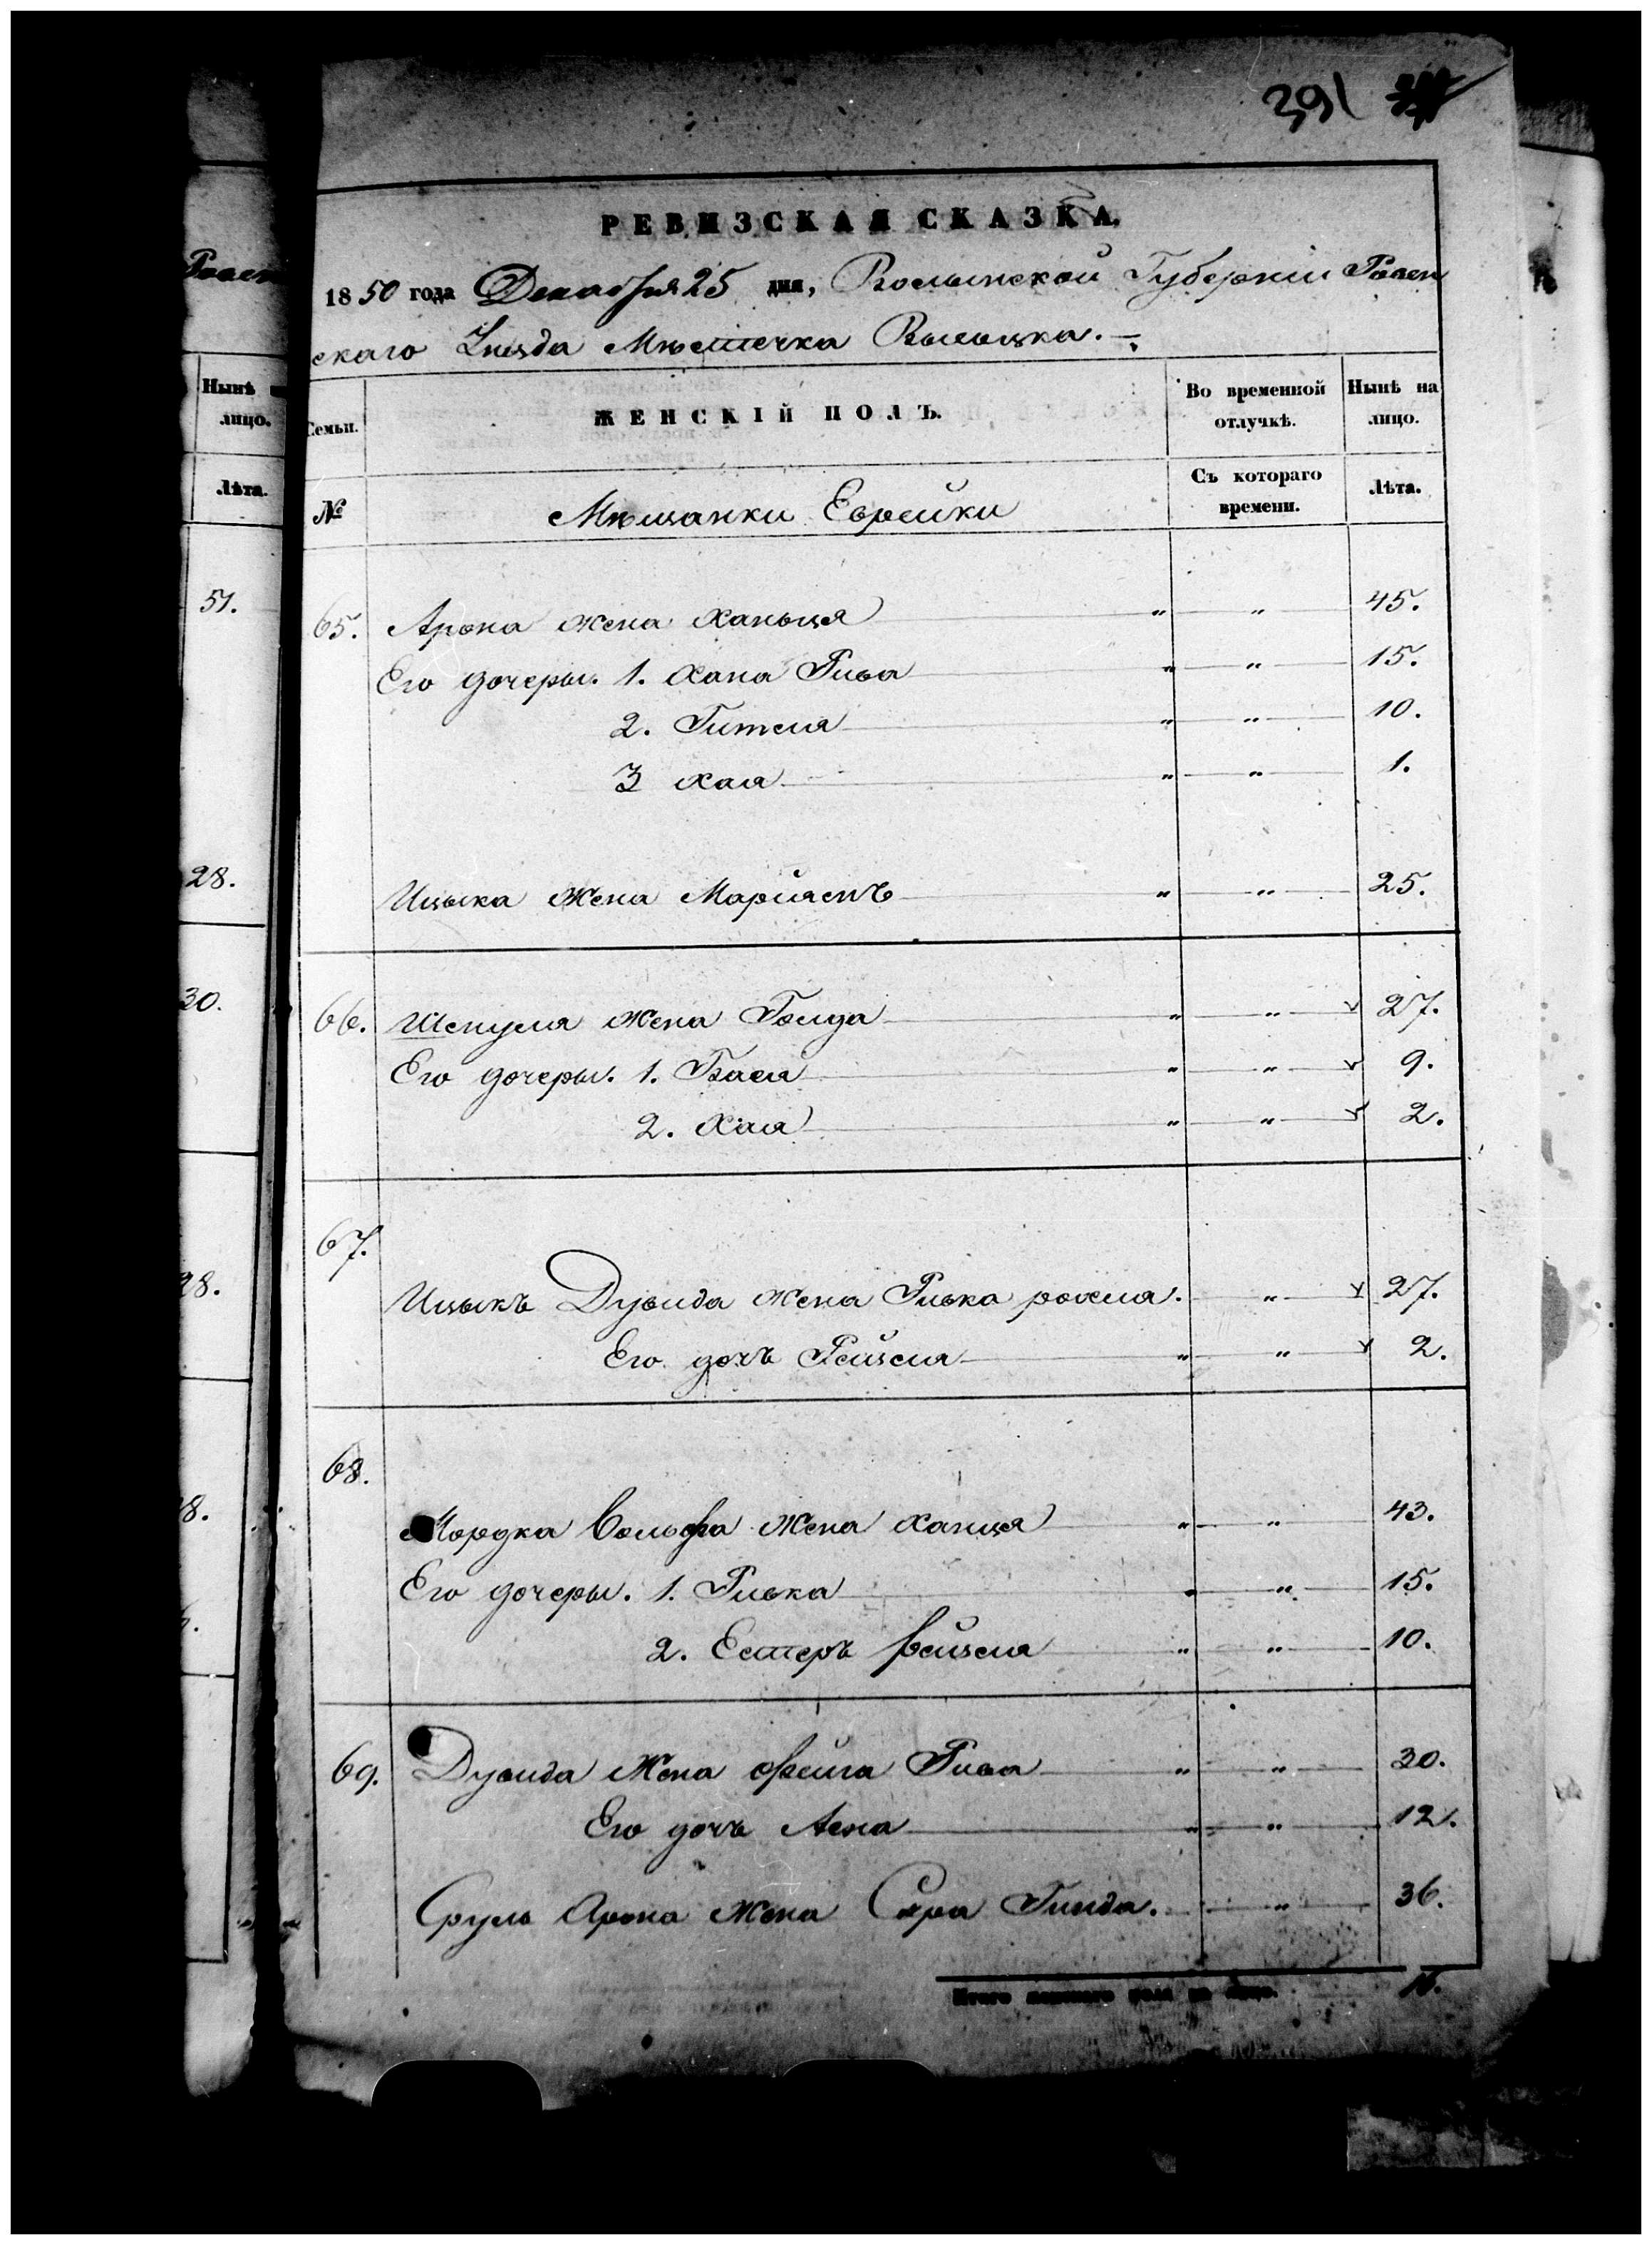 291
РЕВИЗСКАЯ СКАЗКА.
1850 года Декабря 25 дня, Волынской Губерніи Ровен
скаго Уѣзда Мѣстечка Высоцка.
Нынѣ
лицо.
Лѣта.
51.
28.
30.
28.
8.
Семьи.
ЖЕНСКІЙ ПОЛЪ.
Во временной отлучкѣ.
Нынѣ на лицо.
№
Мѣщанки Еврейки
Съ котораго времени.
Лѣта.
65. Арона жена Ханьця " " 45.
Его дочеры. 1. Хана Рива " " 15.
2. Гителя " " 10.
3 Хая " " 1.
Ицька Жена Маріясъ " " 25.
66. Шепуля жена Голда " " 27.
Его дочеры. 1. Бася " " 9.
2. Хая " " 2.
67.
Ицькъ Дувида жена Ривка рохля. " 27.
Его дочь Рейзеля " " 2.
68.
Мордка Вольфа Жена Ханця " " 43.
Его дочеры. 1. Ривка " " 15.
2. Естеръ Рейзеля " " 10.
69. Дувида Жена Фейга Рива " " 30.
Его дочь Асна " " 12.
Сруль Арона жена Сара Гинда. " 36.
Итого женскаго пола на лицо. 16.